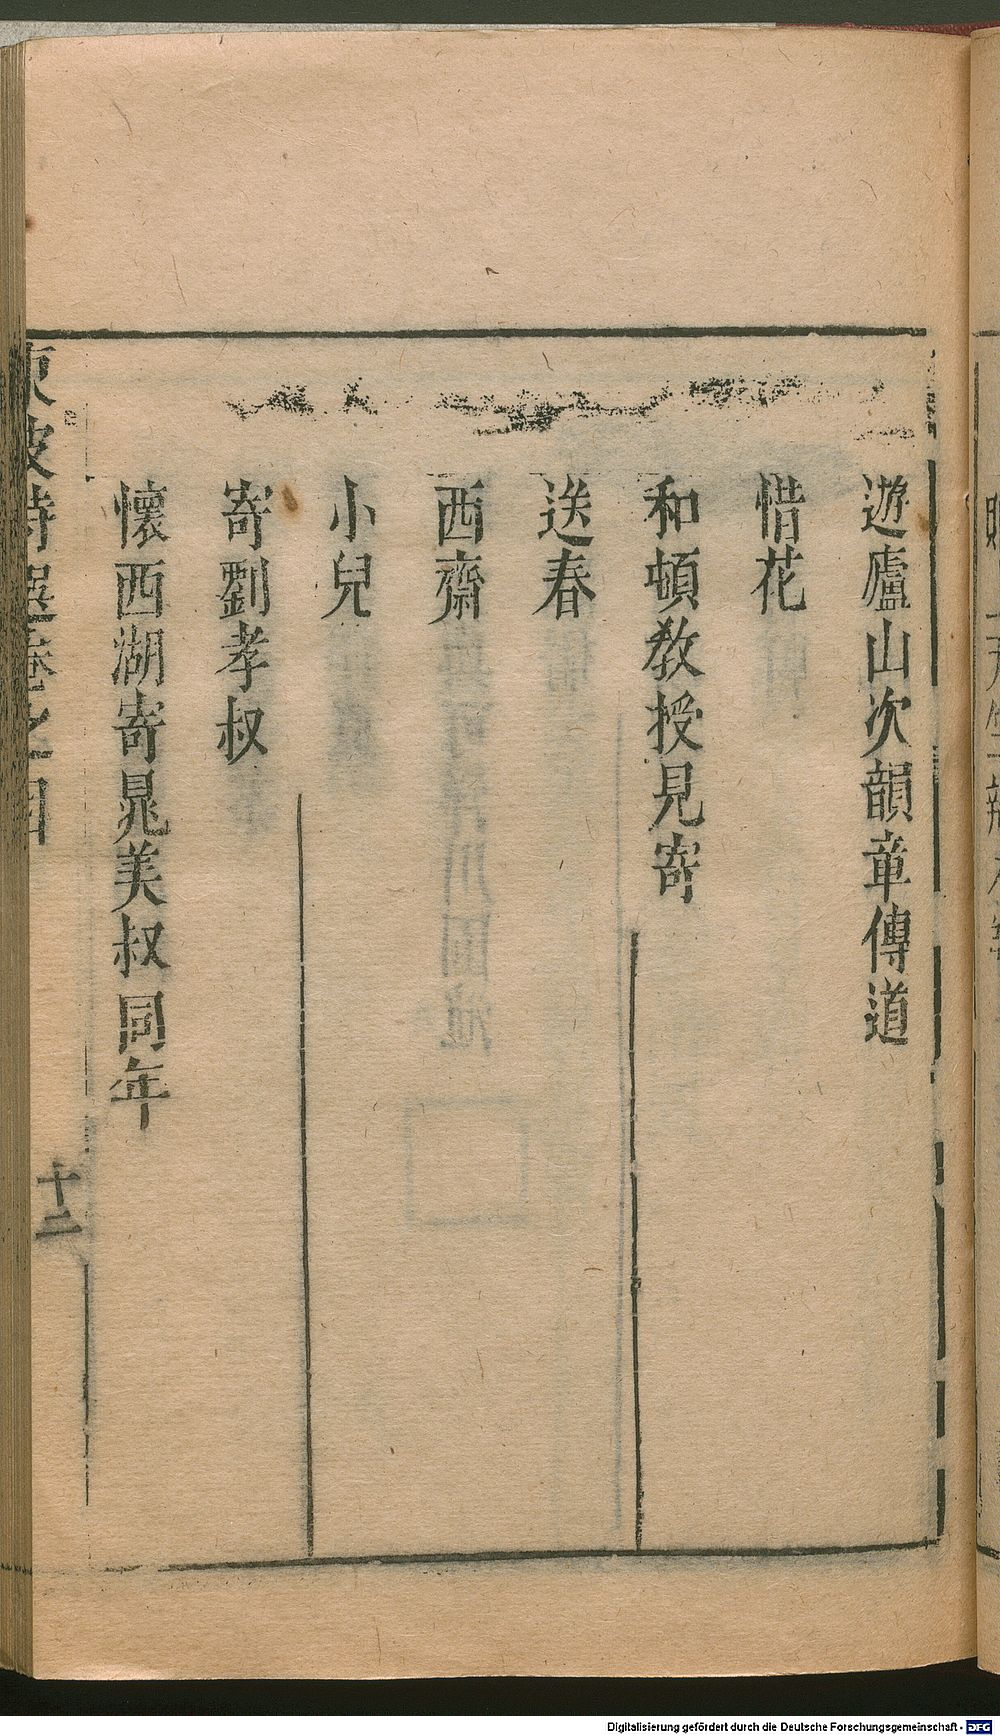 遊廬山次韻章傳道
惜花
和頓教授見寄
送春
西齋
小兒
寄劉孝叔
懷西湖寄晁美叔同年
東坡詩選卷之目
十二
Digitalisierung gefördert durch die Deutsche Forschungsgemeinschaft - DFG